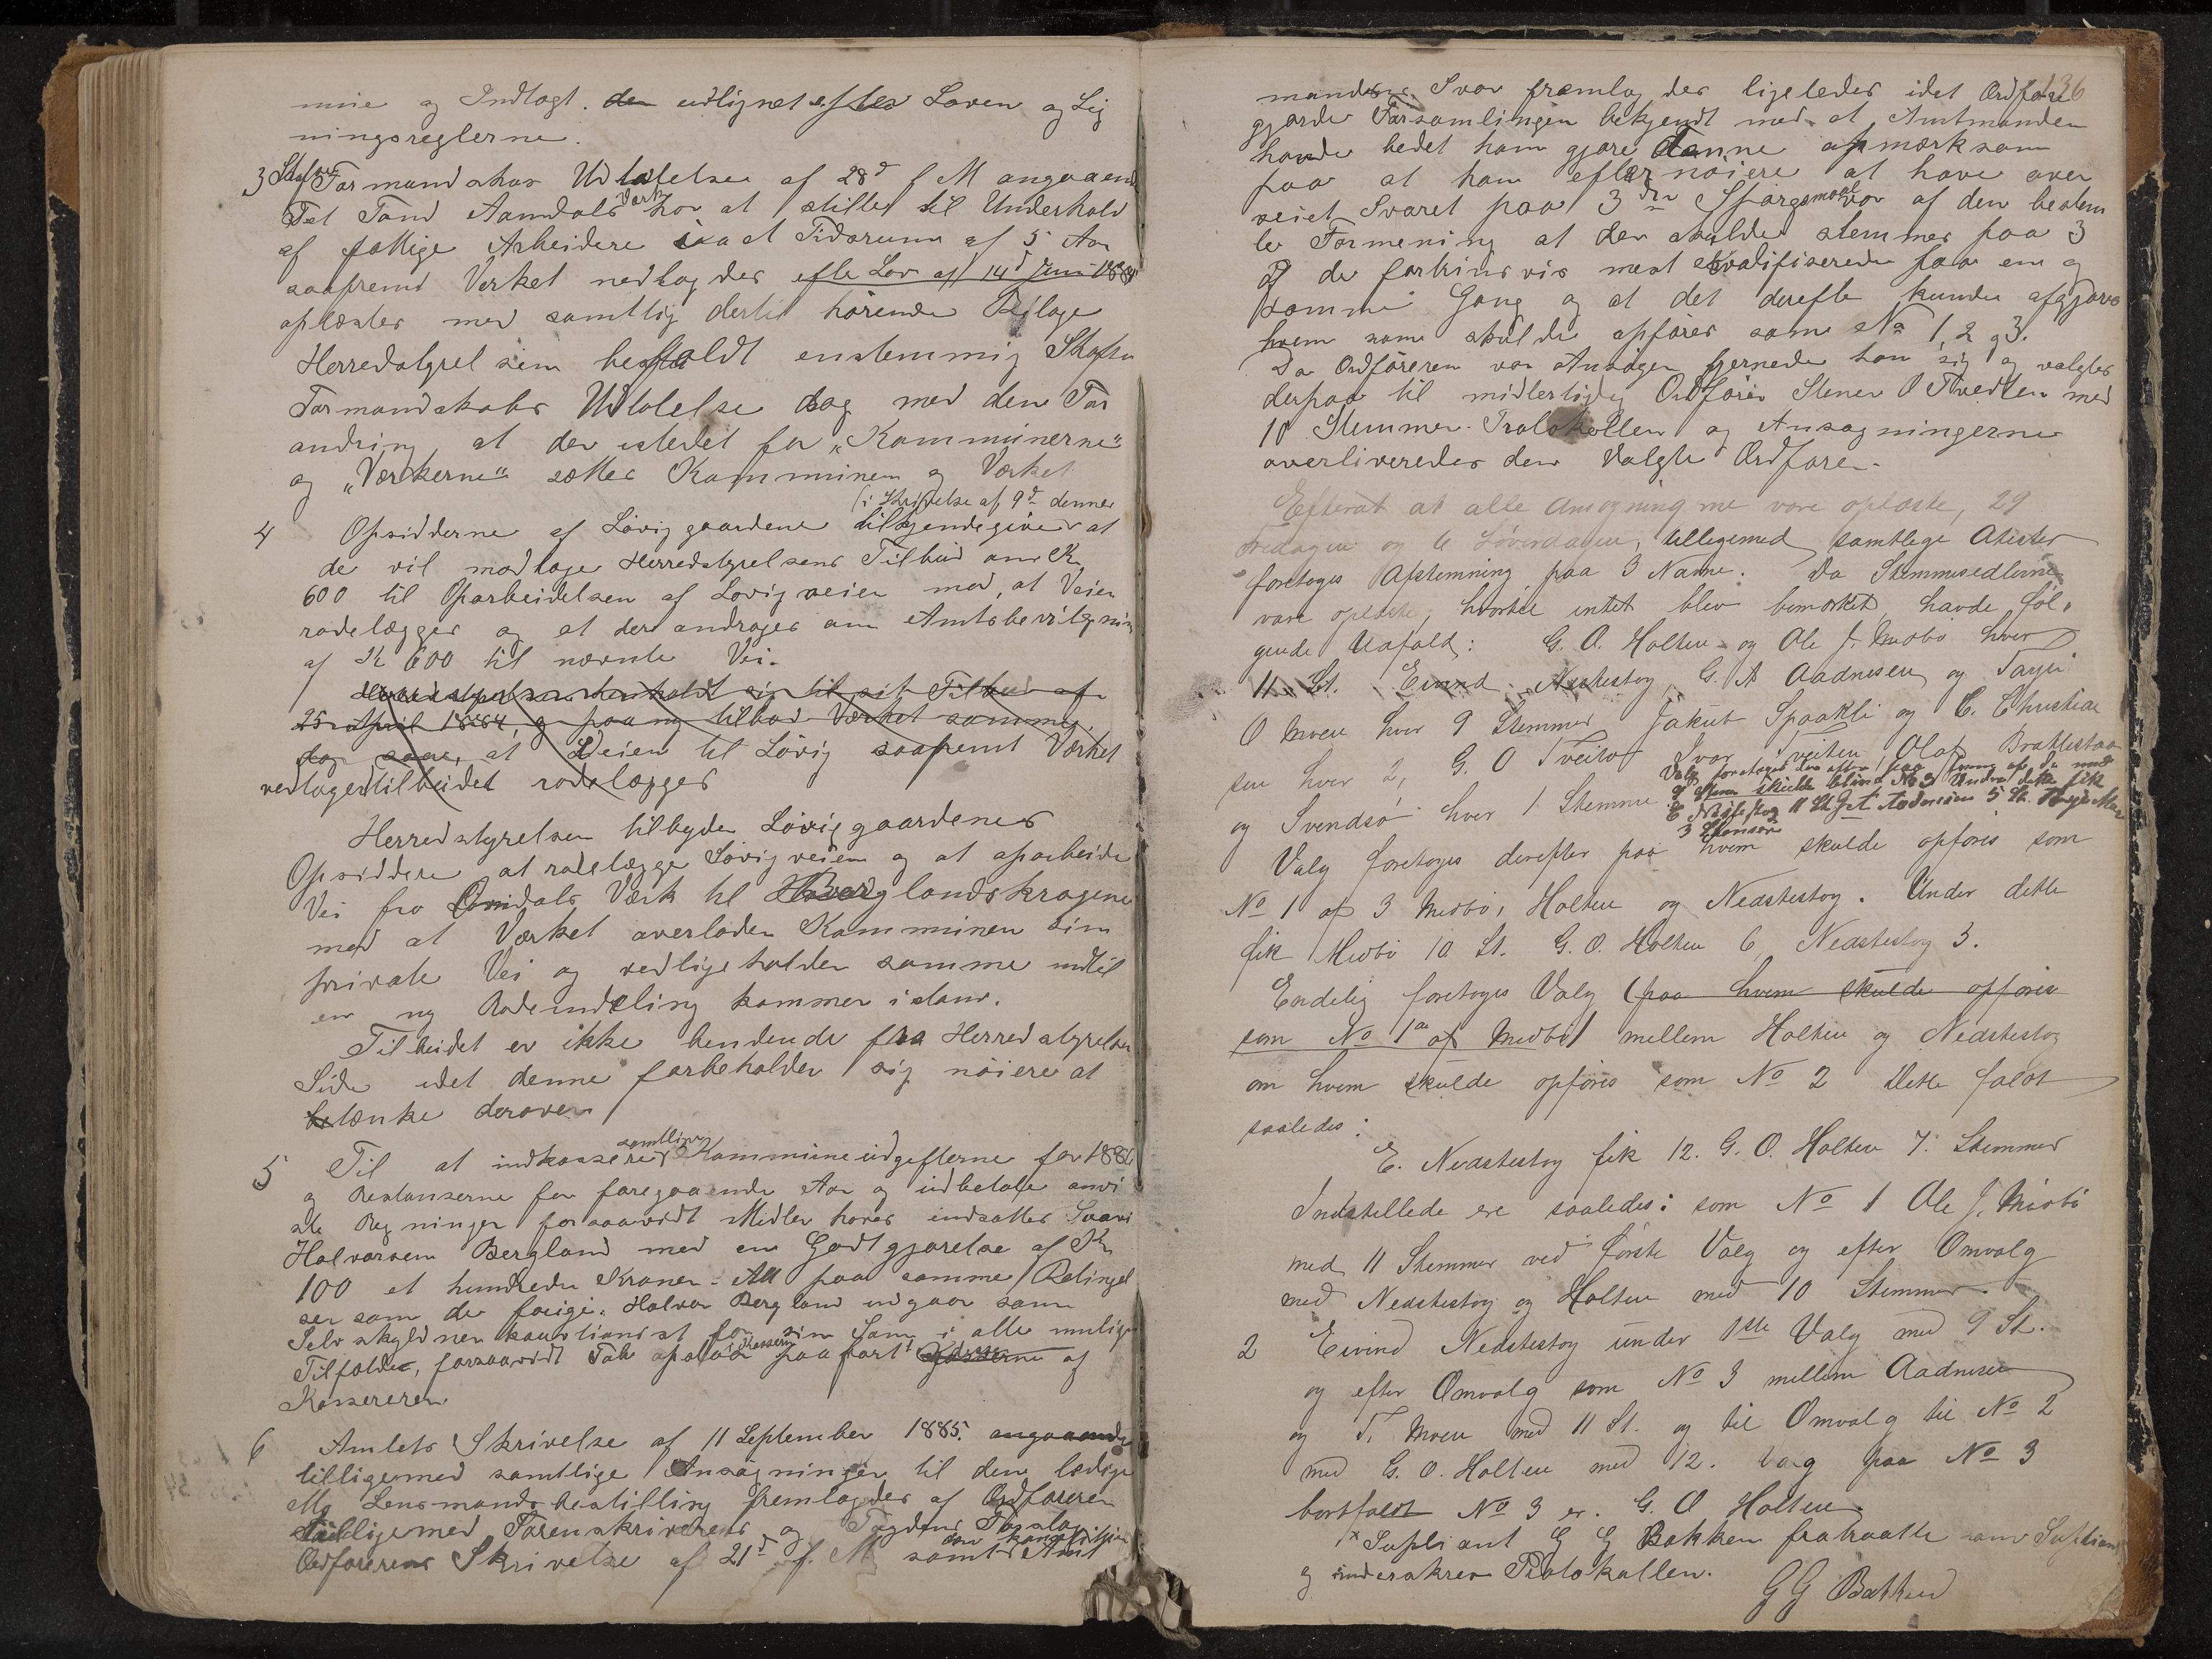 mine og Indtægt. den udlignet efter Loven og Lig
ningsreglerne.
3 Skafse Formandskabs Udtalelse af 28d f M angaaende
Det Fond Aamdals Værk har at stille til Underhold
af fattige Arbeidere i et Tidsrum af 5 Aar
saafremt Verket nedlægges efter Lov af 14d Juni 1884
oplæstes med samtlig dertil hørende Bilage
Herredstyrelsen besluttede enstemmig Skafse
Formandskabs Udtalelse dog med den For
andring at der istedet for "Kommunerne"
og "Værkerne" sættes Kommunen og Værket
(i Skrivelse af 9d dennes
4 Opsidderne af Løvig gaardene tilkjendegiver at
de vil modtage Herredstyrelsens Tilbud om Kr
600 til Oparbeidelsen af Løvigveien mod, at Veien
rodelægges og at der andrages om Amtsbevilgning
af Kr 600 til nævnte Vei.
Herredstyrelsen henholdt sig til sit Tilbud af
25 April 1884, og paa ny tilbød Værket samme
dag saae, at Veien til Løvig saafremt Værket
vedtager tilbudet rodelægges
Herredstyrelsen tilbyder Løviggaardenes
Opsiddere at rodelægge Løvigveien og at oparbeide
Vei fra Omdals Værk til Berglandskragene
mod at Værket overlader Kommunen sin
private Vei og vedligeholder samme indtil
en ny Rodeinddeling kommer istand.
Tilbudet er ikke bindende fra Herredstyrelsens
Side idet denne forbeholder sig nøiere at
betænke derover
5 Til at indkassere samtlige Kommuneudgifterne for 1886
og Restanserne for foregaaende Aar og udbetale anvi
ste Regninger forsaavidt Midler haves indsattes Svavi
Halvorsen Bergland med en Godtgjørelse af Kr
100 et hundrede Kroner. Alt paa samme Betingel
ser som de forige. Halvor Bergland indgaar som
Selvskyldner kautionist for sin Søn i alle mulige
Tilfælde, forsaavidt Tab opstaar Kassereren paaført Kasserne af
Kassereren
6 Amtets Skrivelse af 11 September 1885. angaaende
tilligemed samtlige Ansøgninger til den ledige
Mo Lensmandsbestilling fremlagdes af Ordføreren
Tilligemed Sorenskriverens og Fogdens Forslag
Ordførerens Skrivelse af 21d f. M. samt Amt
136
mandens Svar fremlagdes ligeledes idet Ordføre
gjorde Forsamlingen bekjendt med at Amtmanden
havde bedet ham gjøre denne opmærksom
paa at han efter nøiere at have over
veiet Svaret paa 3die Spørgsmaal var af den bestem
te Formening at der skulde stemmes paa 3
af de fortrinsvis mest kvalifiserede paa en og
samme Gang og at det derefter kunde afgjøres
hvem som skulde opføres som No 1, 2 og 3.
Da Ordføreren var Ansøger fjernede han sig og valgtes
derpaa til midlertidig Ordfører Stener O Tvedten med
10 Stemmer. Protokollen og Ansøgningerne
overliveredes den Valgte Ordfører.
Efterat at alle Ansøgningerne vare oplæste, 29
Fredagen og 6 Løverdagen, tilligemed samtlige Atester
foretoges Afstemning paa 3 Navne. Da Stemmesedlerne
vare oplæste, hvortil intet blev bemærket, havde føl,
gende Udfald: G. O. Holten og Ole J. Midbø hver
11 St. Eivind Nedstestog, G. A Aadnesen og Targei
O Moen hver 9 Stemmer Jakub Spaakli og C. Christian
sen hver 2, G. O Tveito Ivar Tveiten Olaf Brattestaa
og Svendsø hver 1 Stemme
Valg foretoges derefter paa hvem af de med
9 Stem skulde blive No 3 Under dette fik
E Nedstestog 11 St G. A Aadnesen 5 St. Targei Moen
3 Stemmer
Valg foretoges derefter paa hvem skulde opføres som
No 1 af 3 Midbø, Holten og Nedstestog. Under dette
fik Midbø 10 St. G. O. Holten 6, Nedstestog 3.
Endelig foretoges Valg (paa hvem skulde opføres
som No 1 af Midbø) mellem Holten og Nedstestog
om hvem skulde opføres som No 2 Dette faldt
saaledes:
E. Nedstestog fik 12. G. O. Holten 7. Stemmer
Indstillede ere saaledes: som No 1 Ole J. Midbø
med 11 Stemmer ved første Valg og efter Omvalg
med Nedstestog og Holten med 10 Stemmer.
2 Eivind Nedstestog under 1ste Valg med 9 St.
og efter Omvalg som No 3 mellem Aadnesen
og T. Moen med 11 St. og til Omvalg til No 2
med G. O. Holten med 12. Valg paa No 3
bortfaldt No 3 er. G. O Holten
x Supliant G G Bakken fratraatte som Supliant
og underskrev Protokollen.
G G Bakken